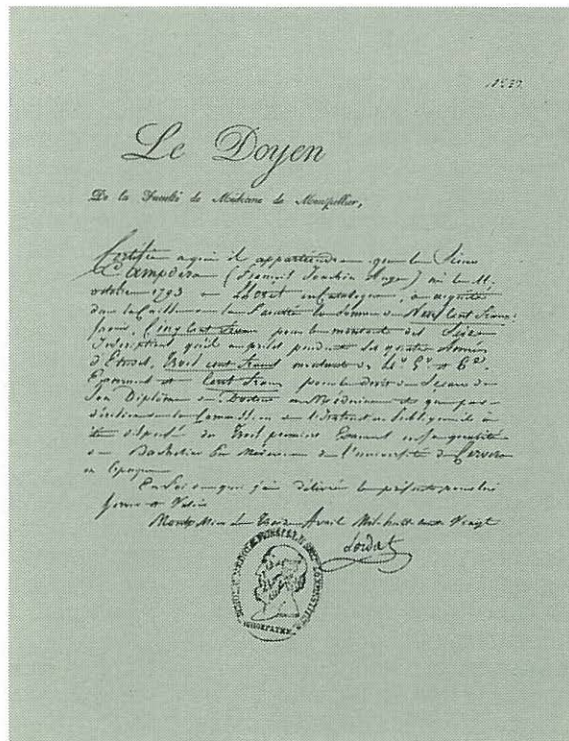 Le Doyen
De la Faculté de Médecine de Montpellier,
Certifie à qui il appartiendra que le Sieur
Campderá (François Joachin Ange) né le 11,
octobre 1793 a Lloret en Catalogne, a acquitté
dans la Caisse de la Faculté la somme de Neuf Cent francs
Savoir, Cinq Cent francs pour le montant des Seize
Inscriptions qu'il a prises pendant les quatre Années
d'Etudes, Trois cent francs montant des 4e 5e et 6e
Examens et Cent francs pour le droit de Sceau de
Son Diplôme de Docteur en Médecine et que par
décision de la Commission de l'Instruction Publique il a
été dispensé des Trois premiers Examens en Sa qualité
de Bachelier en Médecine de l'université de Cervera
en Espagne
En foi de quoi j'ai délivré le présent pour lui
Servir et Valoir
Montpellier le Treize Avril Mil huit cent Vingt
Lordat